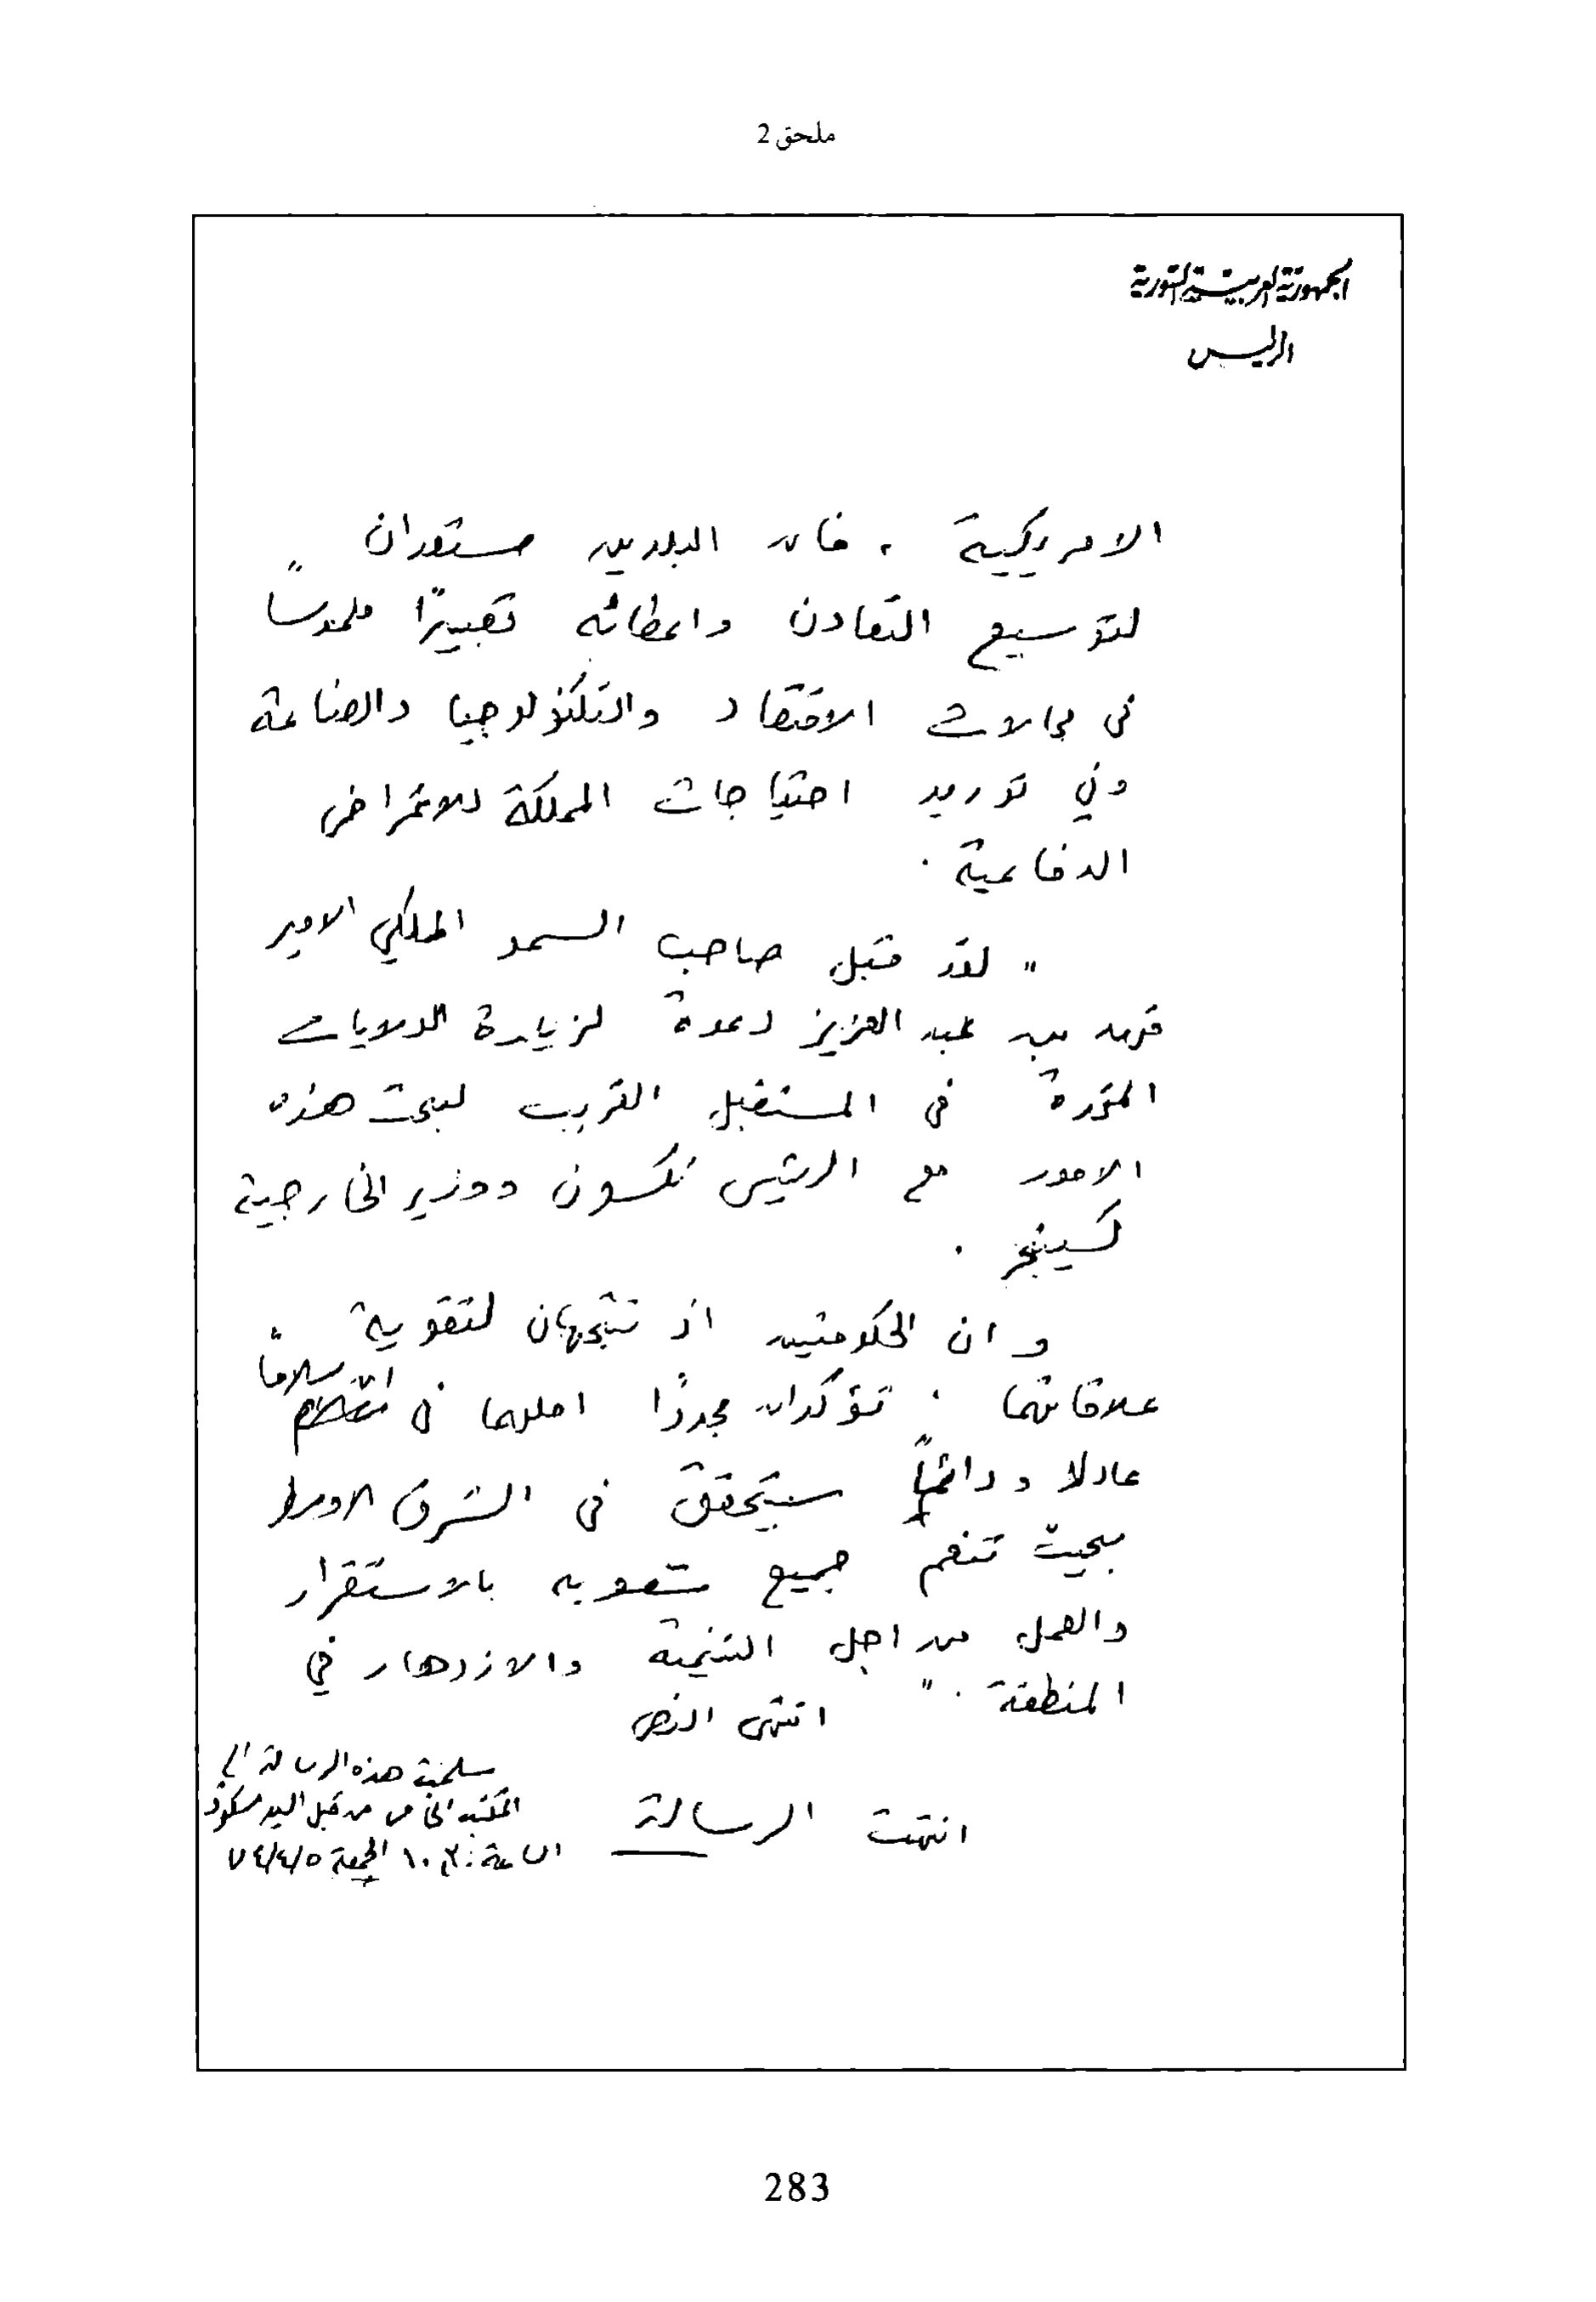 ملحق 2
الجمهورية العربية السورية
الرئيس
الامريكية ، فان البلدين مستعدان
لتوسيع التعاون واعطائه تعبيرًا ملموساً
في مجالات الاقتصاد والتكنولوجيا والصناعة
وفي توريد احتياجات المملكة للاغراض
الدفاعية .
" لقد قبل صاحب السمو الملكي الامير
فهد بن عبد العزيز دعوة لزيارة الولايات
المتحدة في المستقبل القريب لبحث هذه
الامور مع الرئيس نكسون ووزير الخارجية
كسينجر .
وان الحكومتين اذ تتجهان لتقوية
علاقاتهما ، تؤكدان مجددًا املهما في ان سلاماً
عادلا ودائماً سيتحقق في الشرق الاوسط
بحيث تنعم جميع شعوبه بالاستقرار
والعمل من اجل التنمية والازدهار في
المنطقة . "
انتهى النص
انتهت الرسالة
سلمت هذه الرسالة الى
المكتب الخاص من قبل السيد سكوت
الساعة ١٠،٣٠ الجمعة ٧٤/٤/٥
283